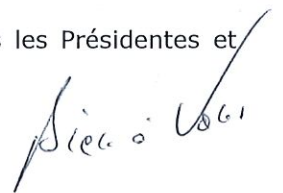 s les Présidentes et
Bien à Vous